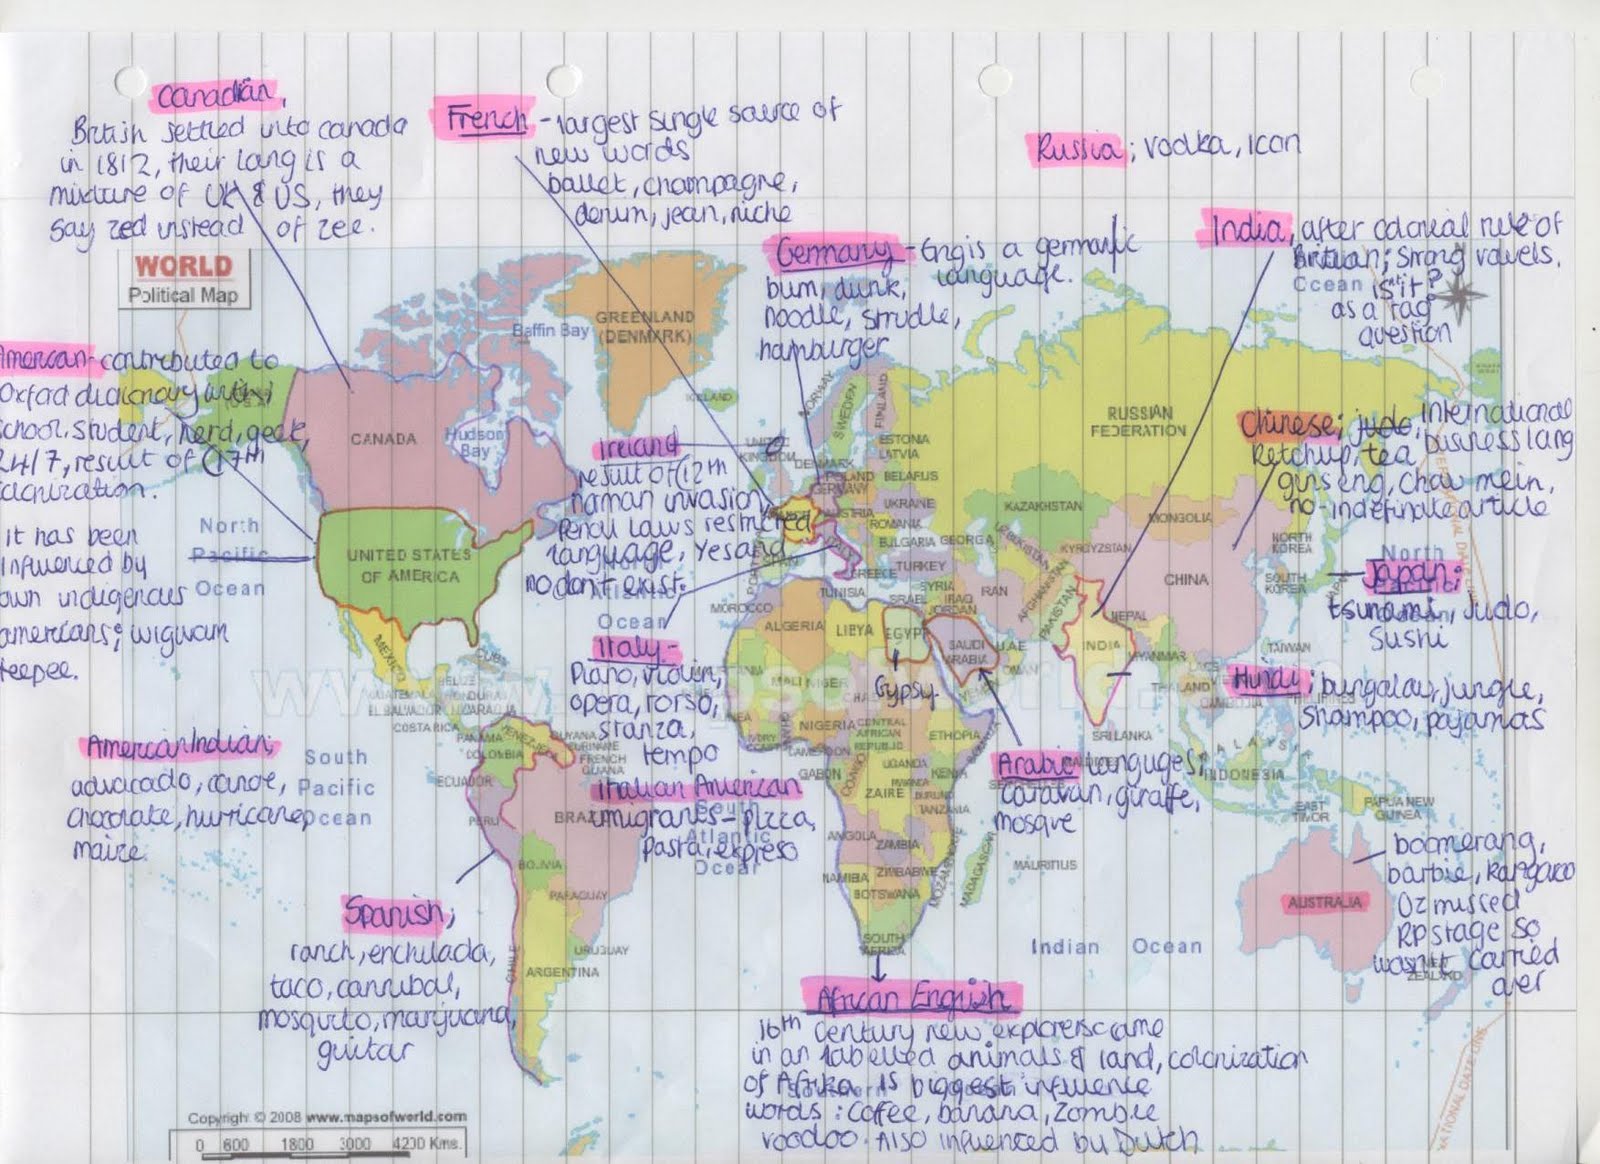 Canadian,
British settled into canada
in 1812, their lang is a
mixture of UK & US, they
say zed instead of zee.
French - largest single source of
new words
ballet, champagne,
denim, jean, niche
Russia; vodka, icon
Germany - Eng is a germanic
language.
bum, dunk,
noodle, strudle,
hamburger
India, after colonial rule of
Britian; strong vowels.
"is it?"
as a tag
question
WORLD
Political Map
American - contributed to
Oxford dictionary with;
school, student, nerd, geek,
24/7, result of 17th
colonization.
it has been
influenced by
own indigenous
americans; wigwam
teepee.
Ireland
result of 12th
norman invasion
Penal laws restricted
language, Yes and
no don't exist.
Chinese; judo International
business lang
Ketchup, tea
ginseng, chow mein,
no-indefinate article
Japan;
tsunami, judo,
Sushi
Hindi; bungalow, jungle,
shampoo, pajamas
Italy -
Piano, violin,
opera, torso,
stanza,
tempo
Italian American
imigrants - pizza,
pasta, expreso
Gypsy.
Arabic languges;
caravan, giraffe,
mosque
American Indian;
advacado, canoe,
chocolate, hurricane,
maize.
Spanish;
ranch, enchilada,
taco, cannibal,
mosquito, marijuana,
guitar
boomerang,
barbie, kangaroo
Oz missed
RP stage so
wasn't carried
over
African English
16th century new explorers came
in an labelled animals & land, colonization
of Afrika is biggest influence
words: coffee, banana, zombie
voodoo. Also influenced by Dutch
GREENLAND
(DENMARK)
Baffin Bay
Hudson
Bay
CANADA
UNITED STATES
OF AMERICA
North
Pacific
Ocean
MEXICO
CUBA
BELIZE
GUATEMALA
HONDURAS
EL SALVADOR
NICARAGUA
COSTA RICA
PANAMA
VENEZUELA
COLOMBIA
GUYANA
SURINAME
FRENCH
GUIANA
ECUADOR
PERU
BRAZIL
BOLIVIA
PARAGUAY
CHILE
URUGUAY
ARGENTINA
South
Pacific
Ocean
Atlantic
Ocean
South
Atlantic
Ocean
ICELAND
NORWAY
SWEDEN
FINLAND
UNITED
KINGDOM
DENMARK
ESTONIA
LATVIA
POLAND
BELARUS
GERMANY
UKRAINE
AUSTRIA
ROMANIA
BULGARIA
GEORGIA
ITALY
SPAIN
PORTUGAL
GREECE
TURKEY
RUSSIAN
FEDERATION
KAZAKHSTAN
UZBEKISTAN
KYRGYZSTAN
MONGOLIA
CHINA
NORTH
KOREA
SOUTH
KOREA
TAIWAN
SYRIA
IRAQ
IRAN
ISRAEL
JORDAN
AFGHANISTAN
PAKISTAN
NEPAL
INDIA
MYANMAR
LAOS
THAILAND
CAMBODIA
SRI LANKA
MALDIVES
MALAYSIA
INDONESIA
EAST
TIMOR
PAPUA NEW
GUINEA
MOROCCO
ALGERIA
TUNISIA
LIBYA
EGYPT
SAUDI
ARABIA
U.A.E.
OMAN
YEMEN
MALI
NIGER
NIGERIA
GUINEA
IVORY
COAST
CAMEROON
CENTRAL
AFRICAN
REPUBLIC
ETHIOPIA
SOMALIA
UGANDA
KENYA
RWANDA
BURUNDI
GABON
CONGO
ZAIRE
TANZANIA
ANGOLA
ZAMBIA
NAMIBIA
ZIMBABWE
BOTSWANA
MOZAMBIQUE
MADAGASCAR
SOUTH
AFRICA
MAURITIUS
Indian Ocean
AUSTRALIA
NEW
ZEALAND
NATIONAL DATE LINE
Copyright © 2008 www.mapsofworld.com
0 600 1800 3000 4200 Kms.